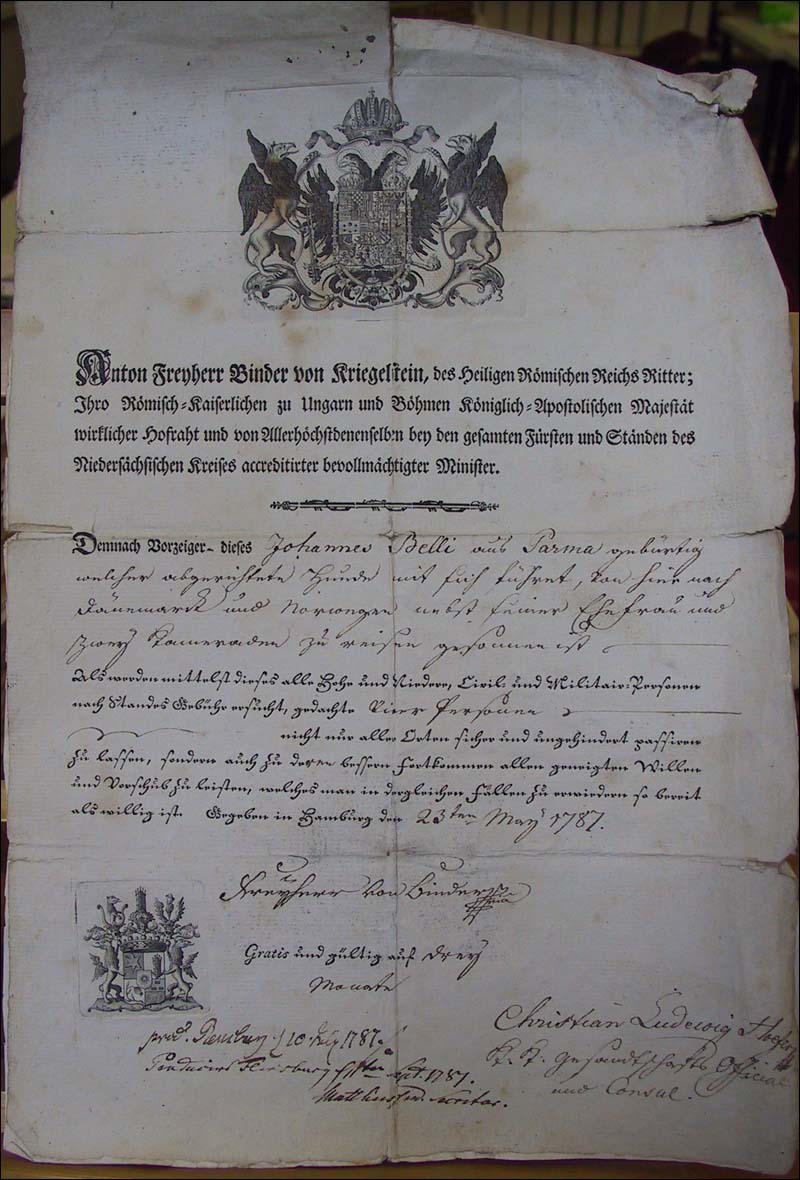 Anton Freyherr Binder von Kriegelstein, des Heiligen Römischen Reichs Ritter;
Ihro Römisch-Kaiserlichen zu Ungarn und Böhmen Königlich-Apostolischen Majestät
wirklicher Hofraht und von Allerhöchstdenenselben bey den gesamten Fürsten und Ständen des
Niedersächsischen Kreises accreditirter bevollmächtigter Minister.
Demnach Vorzeiger dieses Johannes Belli aus Parma gebürtig
welcher abgerichtete Hunde mit sich führet, von hier nach
Dänemarck und Norwegen nebst seiner Ehefrau und
zwey Kameraden zu reisen gesonnen ist
Als werden mittelst dieses alle Hohe und Niedere, Civil- und Militair-Personen
nach Standes Gebühr ersucht, gedachte Vier Personen
nicht nur aller Orten sicher und ungehindert passiren
zu lassen, sondern auch zu deren bessern Fortkommen allen geneigten Willen
und Vorschub zu leisten, welches man in dergleichen Fällen zu erwiedern so bereit
als willig ist. Gegeben in Hamburg den 23ten May 1787.
Freyherr von Binder
Gratis und gültig auf drey
Monate
Christian Ludwig
10 July 1787
K. K. Gesandtschafts Official
Flensburg 1787.
und Consul.